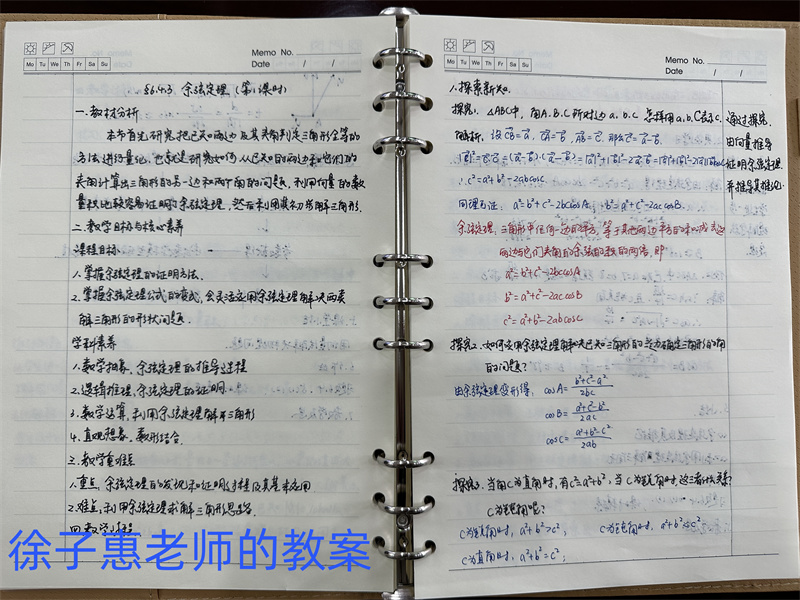 Memo No.
Date / /
Mo Tu We Th Fr Sa Su
§6.4.3 余弦定理 (第1课时)
一.教材分析
本节首先研究把已知两边及其夹角判定三角形全等的
方法进行量化,也就是研究如何从已知的两边和它们的
夹角计算出三角形的另一边和两个角的问题,利用向量的数
量积比较容易证明了余弦定理,然后利用其初步解三角形.
二.教学目标与核心素养
课程目标
1.掌握余弦定理的证明方法.
2.掌握余弦定理公式的变式,会灵活应用余弦定理解决两类
解三角形的形状问题.
学科素养
1.数学抽象:余弦定理的推导过程
2.逻辑推理:余弦定理的证明
3.数学运算:利用余弦定理解三角形
4.直观想象:数形结合.
三.教学重难点
1.重点:余弦定理的发现和证明过程及其基本应用
2.难点:利用余弦定理求解三角形思路.
四.教学过程
徐子惠老师的教案
Memo No.
Date / /
Mo Tu We Th Fr Sa Su
1.探索新知.
探究1. △ABC中,角A.B.C所对边a.b.c,怎样用a,b,C表示c.
解析:设CB=a, CA=b, AB=c, 那么c=a-b.
∴c²=a²+b²-2abcosC
同理可证: a²=b²+c²-2bccosA, b²=a²+c²-2accosB.
余弦定理:三角形中任何一边的平方,等于其他两边平方的和减去这
两边与它们夹角的余弦的积的两倍,即
a²=b²+c²-2bccosA
b²=a²+c²-2accosB
c²=a²+b²-2abcosC
探究2.如何应用余弦定理解决已知三角形的三边确定三角形的角
的问题?
由余弦定理变形得, cosA=(b²+c²-a²)/2bc
cosB=(a²+c²-b²)/2ac
cosC=(a²+b²-c²)/2ab
探究3.当角C为直角时,有c²=a²+b²,当C为锐角时,这三者什么关系?
C为钝角呢?
C为锐角时, a²+b²>c²; C为钝角时, a²+b²<c²
C为直角时, a²+b²=c²;
通过探究,
由向量推导
证明余弦定理
并推导其推论.